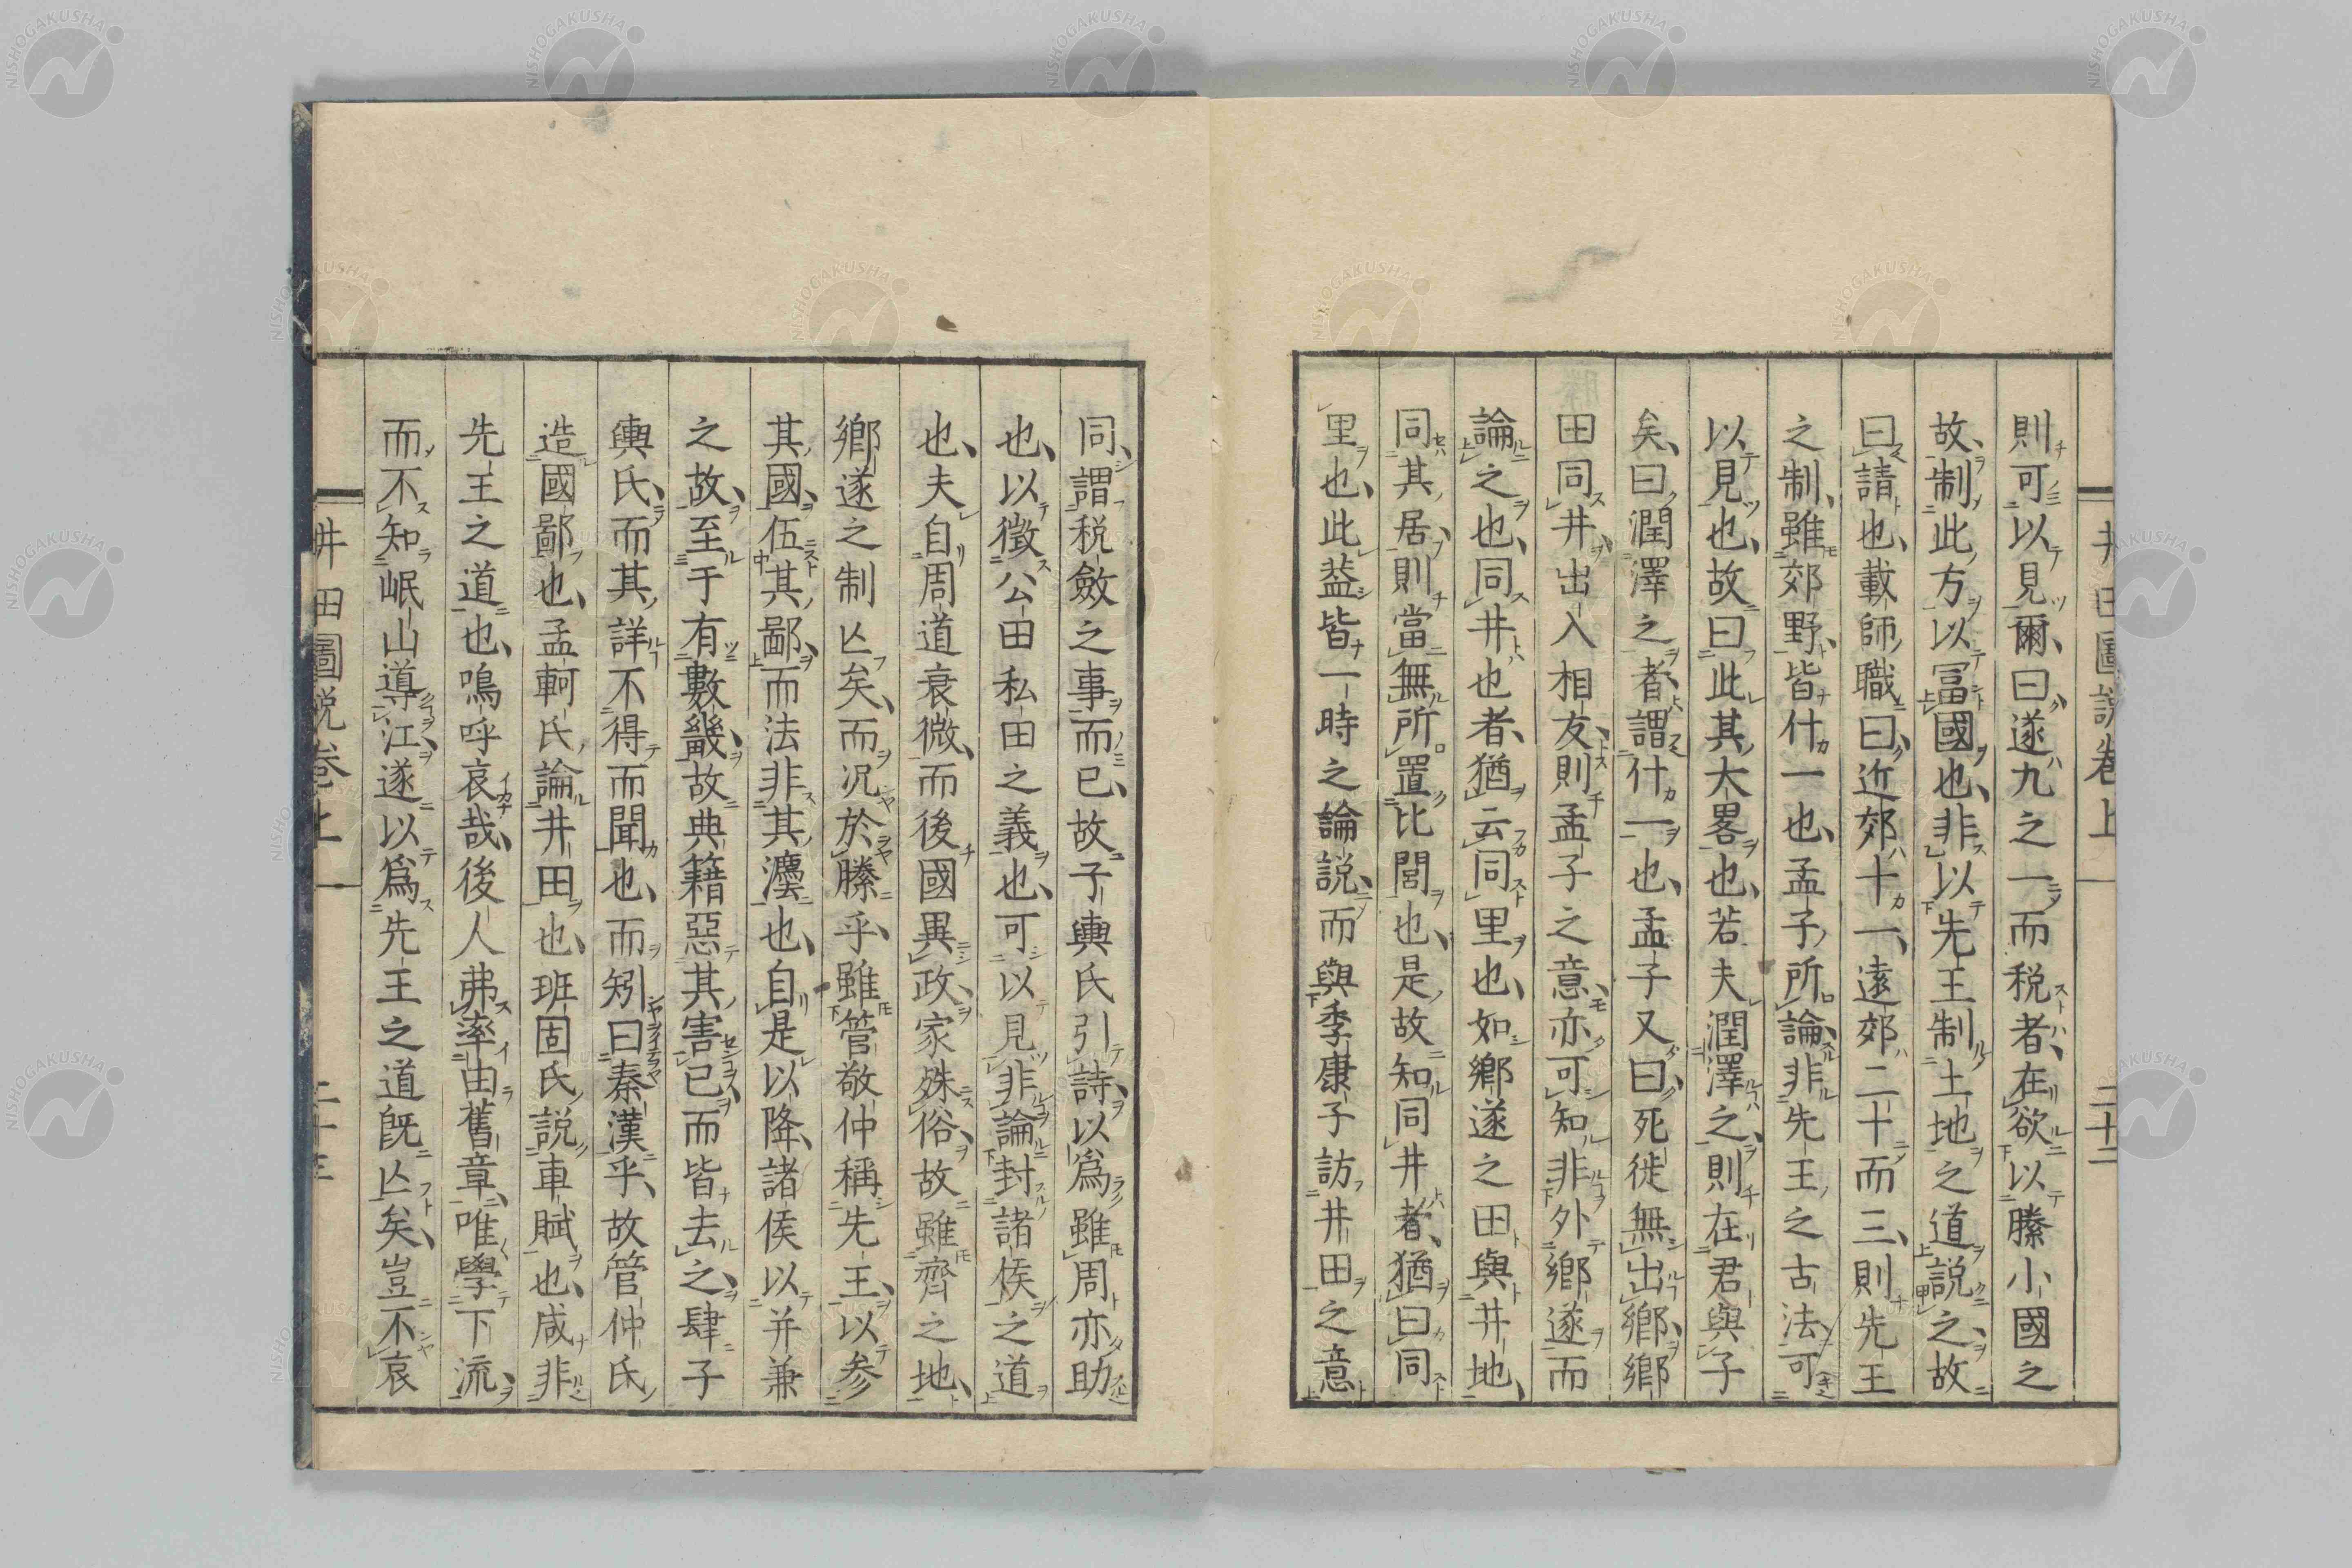 井田圖說卷上
二十二
則可以見爾、曰遂九之一而税者、在欲以滕小國之
故、制此方以冨國也、非以先王制土地之道說之、故
曰請也、載師職曰、近郊十一、遠郊二十而三、則先王
之制、雖郊野、皆什一也、孟子所論、非先王之古法、可
以見也、故曰此其大畧也、若夫潤澤之、則在君與子
矣、曰潤澤之者、謂什一也、孟子又曰、死徙無出鄉、鄉
田同井、出入相友、則孟子之意、亦可知非外鄉遂而
論之也、同井也者、猶云同里也、如鄉遂之田與井地、
同其居、則當無所置比閭也、是故知同井者、猶曰同
里也、此葢皆一時之論説、而與季康子訪井田之意
同、謂税斂之事而已、故子輿氏引詩、以爲雖周亦助
也、以徴公田私田之義也、可以見非論封諸侯之道
也、夫自周道衰微、而後國異政、家殊俗、故雖齊之地、
鄉遂之制亾矣、而况於滕乎、雖管敬仲稱先王、以参
其國、伍其鄙、而法非其灋也、自是以降、諸侯以并兼
之故、至于有數畿、故典籍惡其害己而皆去之、肆子
輿氏、而其詳不得而聞也、而矧曰秦漢乎、故管仲氏
造國鄙也、孟軻氏論井田也、班固氏說車賦也、咸非
先王之道也、嗚呼哀哉、後人弗率由舊章、唯學下流、
而不知岷山導江、遂以爲先王之道既亾矣、豈不哀
井田圖說卷上
二十三